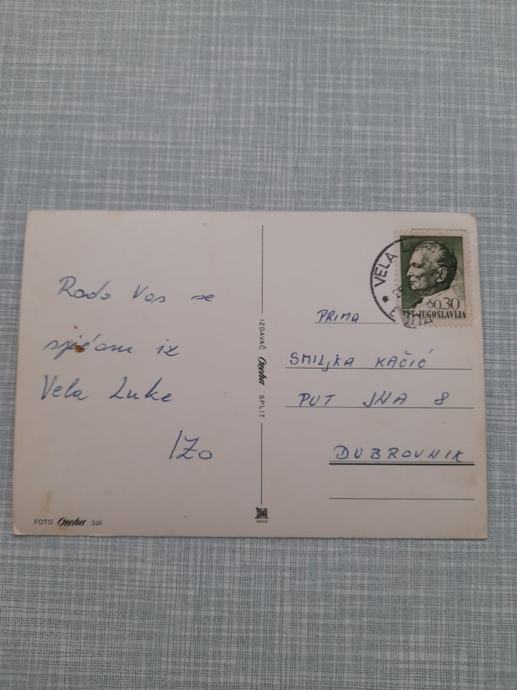 Rado Vas se
sjećam iz
Vela Luke
IZo
FOTO 340
IZDAVAČ SPLIT
VELA
0.30
JUGOSLAVIJA
PRIMA
SMILJKA KAČIĆ
PUT JNA 8
DUBROVNIK